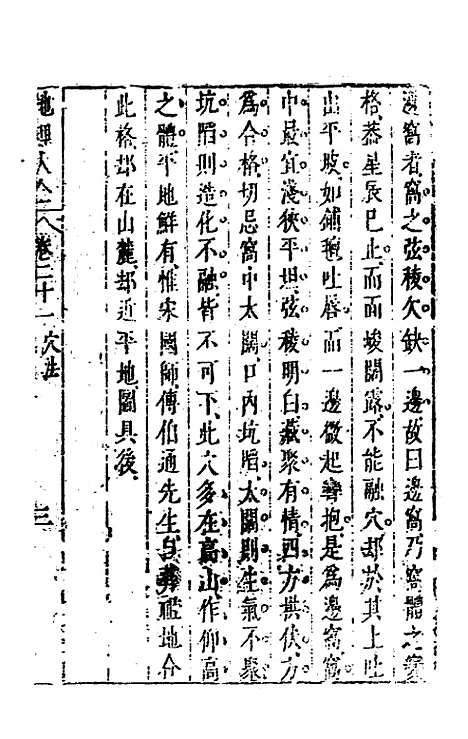 邊窩者窩之弦稜欠缺一邊故曰邊窩乃窩體之變
格葢星辰已止而面峻闊露不能融穴却於其上吐
出平坡如鋪氊吐唇而一邊微起彎抱是爲邊窩窩
中最宜淺狹平坦弦稜明白藏聚有情四方拱伏方
爲合格切忌窩中太闊口内坑陷太闊則生氣不聚
坑陷則造化不融皆不可下此穴多在高山作仰高
之體平地鮮有惟宋國師傅伯通先生自葬監地合
此格却在山麓却近平地圖具後
卷二十一 穴法
三